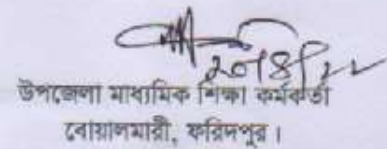 ২০/৪/২২
উপজেলা মাধ্যমিক শিক্ষা কর্মকর্তা
বোয়ালমারী, ফরিদপুর।